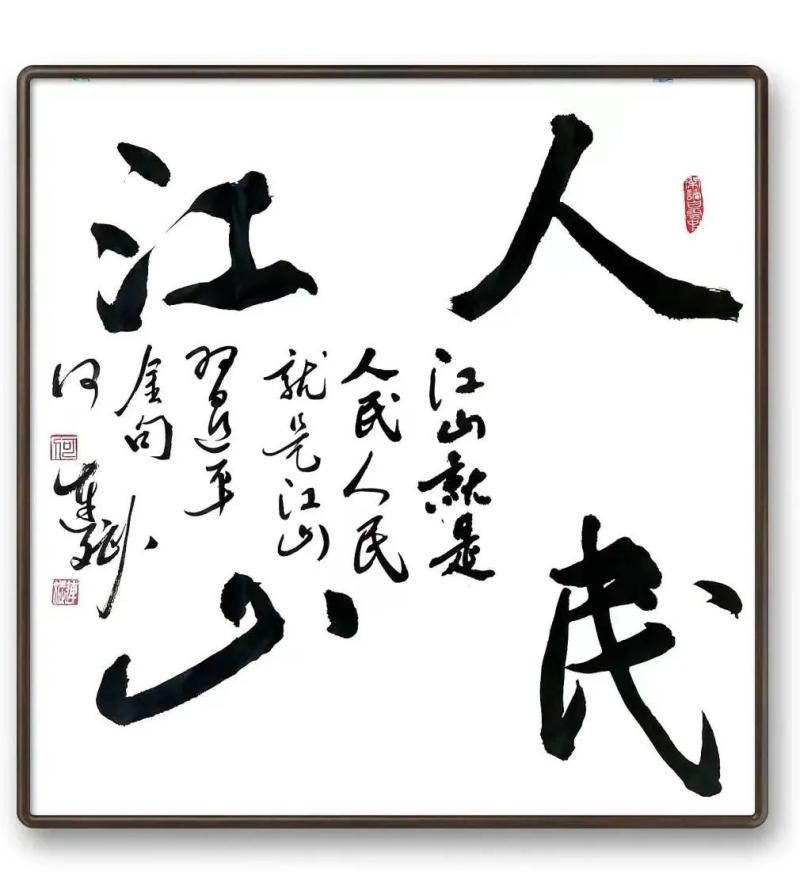 人民
江山
江山就是
人民人民
就是江山
习近平
金句
何